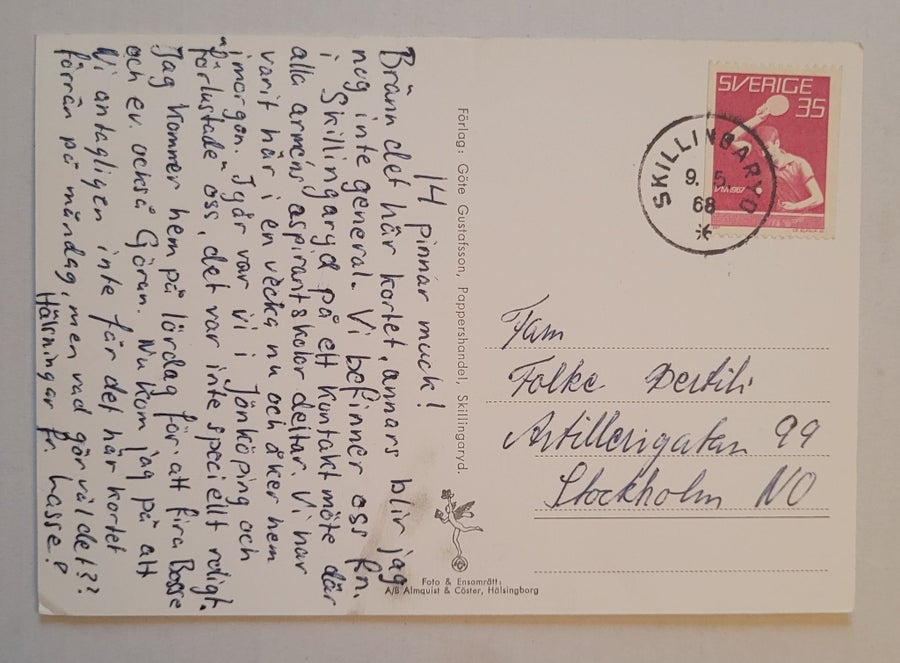 14 pinnar muck!
Bränn det här kortet, annars blir jag
nog inte general. Vi befinner oss fn.
i Skillingaryd på ett kontaktmöte där
alla arméns aspirantskolor deltar. Vi har
varit här i en vecka nu och åker hem
imorgon. Igår var vi i Jönköping och
"förlustade" oss, det var inte speciellt roligt.
Jag kommer hem på lördag för att fira Bosse
och ev. också Göran. Nu kom jag på att
Vi antagligen inte får det här kortet
förrän på måndag, men vad gör väl det??
Hälsningar fr. Lasse!
Förlag: Göte Gustafsson, Pappershandel, Skillingaryd.
Foto & Ensamrätt:
A/B Almquist & Cöster, Hälsingborg
SVERIGE
35
VM 1967
SKILLINGARYD
9. 5
68
Fam
Folke Bertili
Artillerigatan 99
Stockholm NO